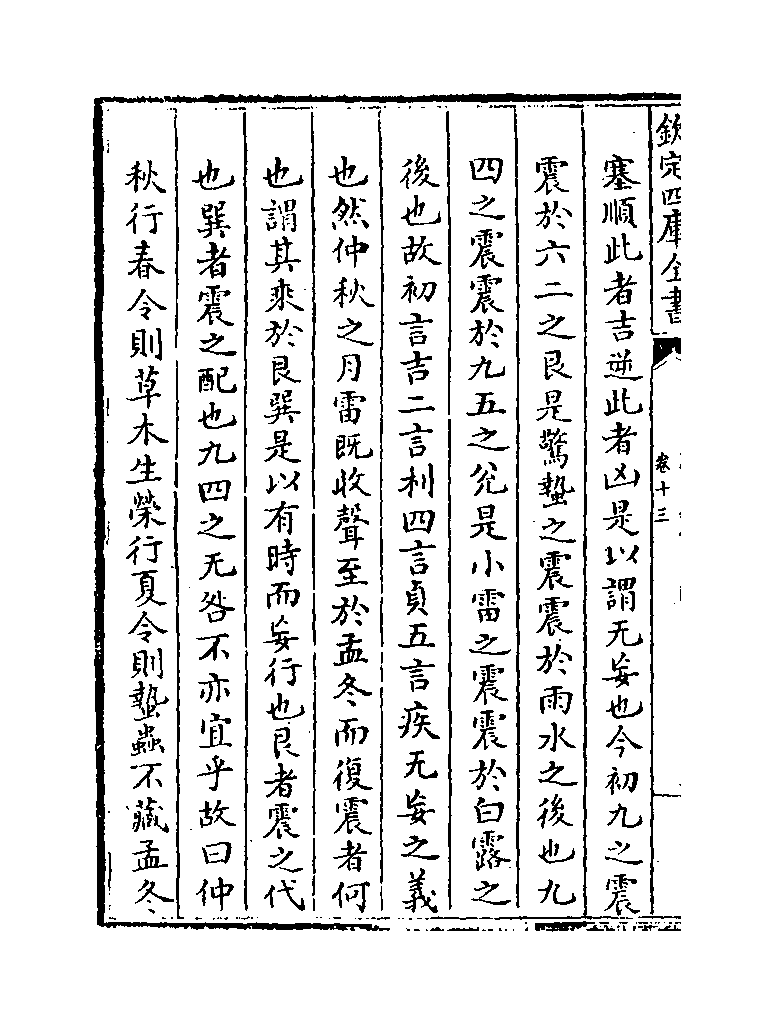 欽定四庫全書
卷十三
塞順此者吉逆此者凶是以謂无妄也今初九之震
震於六二之艮是驚蟄之震震於雨水之後也九
四之震震於九五之兊是小雷之震震於白露之
後也故初言吉二言利四言貞五言疾无妄之義
也然仲秋之月雷既收聲至於孟冬而復震者何
也謂其乘於艮巽是以有時而妄行也艮者震之代
也巽者震之配也九四之无咎不亦宜乎故曰仲
秋行春令則草木生榮行夏令則蟄蟲不藏孟冬